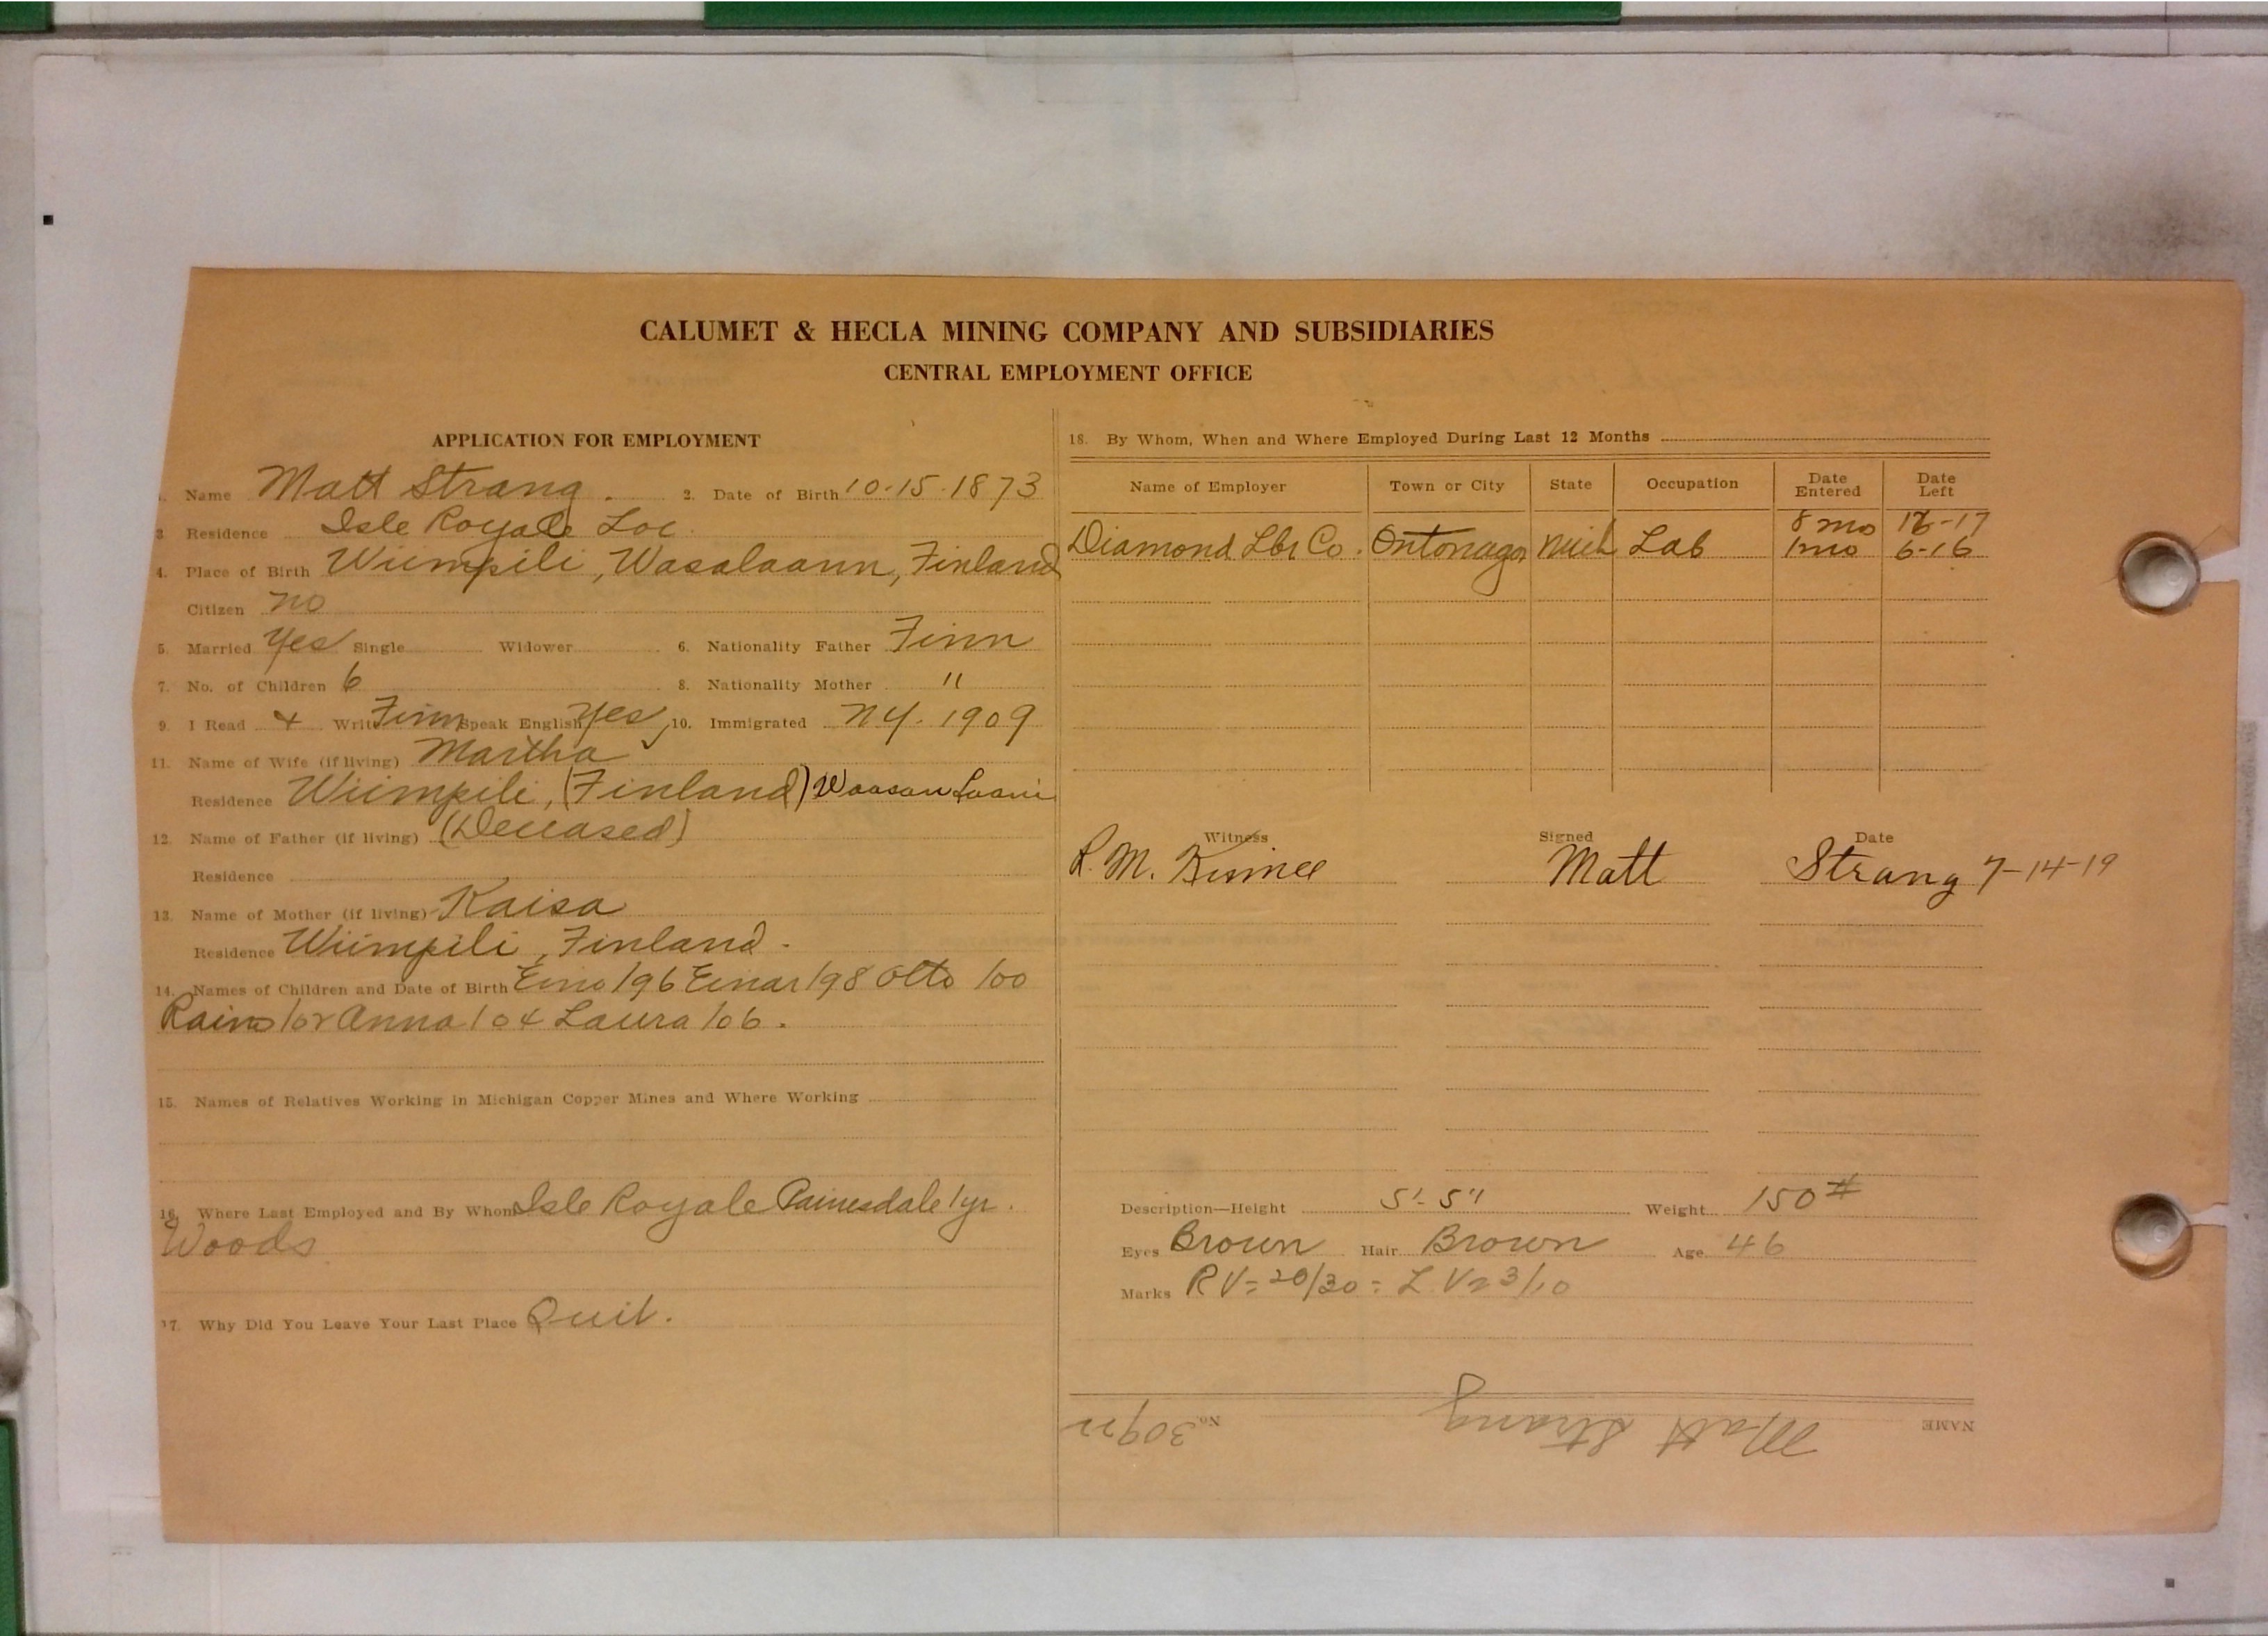 CALUMET & HECLA MINING COMPANY AND SUBSIDIARIES
CENTRAL EMPLOYMENT OFFICE
APPLICATION FOR EMPLOYMENT
Name Matt Strang. 2. Date of Birth 10-15-1873
3 Residence Isle Royale Loc.
4. Place of Birth Wiimpili, Wasalaann, Finland
Citizen no
5. Married Yes Single Widower 6. Nationality Father Finn
7. No. of Children 6 8. Nationality Mother "
9. I Read & Write Finn Speak English Yes 10. Immigrated NY. 1909
11. Name of Wife (if living) Martha
Residence Wiimpili, (Finland) Waasan Laani
12. Name of Father (if living) (Deceased)
Residence
13. Name of Mother (if living) Kaisa
Residence Wiimpili, Finland.
14. Names of Children and Date of Birth Eino 196 Einar 198 Otto 100
Raino 102 Anna 104 Laura 106.
15. Names of Relatives Working in Michigan Copper Mines and Where Working
16. Where Last Employed and By Whom Isle Royale Painesdale 1 yr.
Woods
17. Why Did You Leave Your Last Place Quit.
18. By Whom, When and Where Employed During Last 12 Months
Name of Employer Town or City State Occupation Date Entered Date Left
8 mo -17
Diamond Lbr Co. Ontonagon Mich Lab 1 mo 6-16
Witness Signed Date
Matt Strang 7-14-19
Description—Height 5'-5" Weight 150#
Eyes Brown Hair Brown Age 46
Marks RV= 20/30 = L.V= 3/10
NAME Matt Strang No. 30922